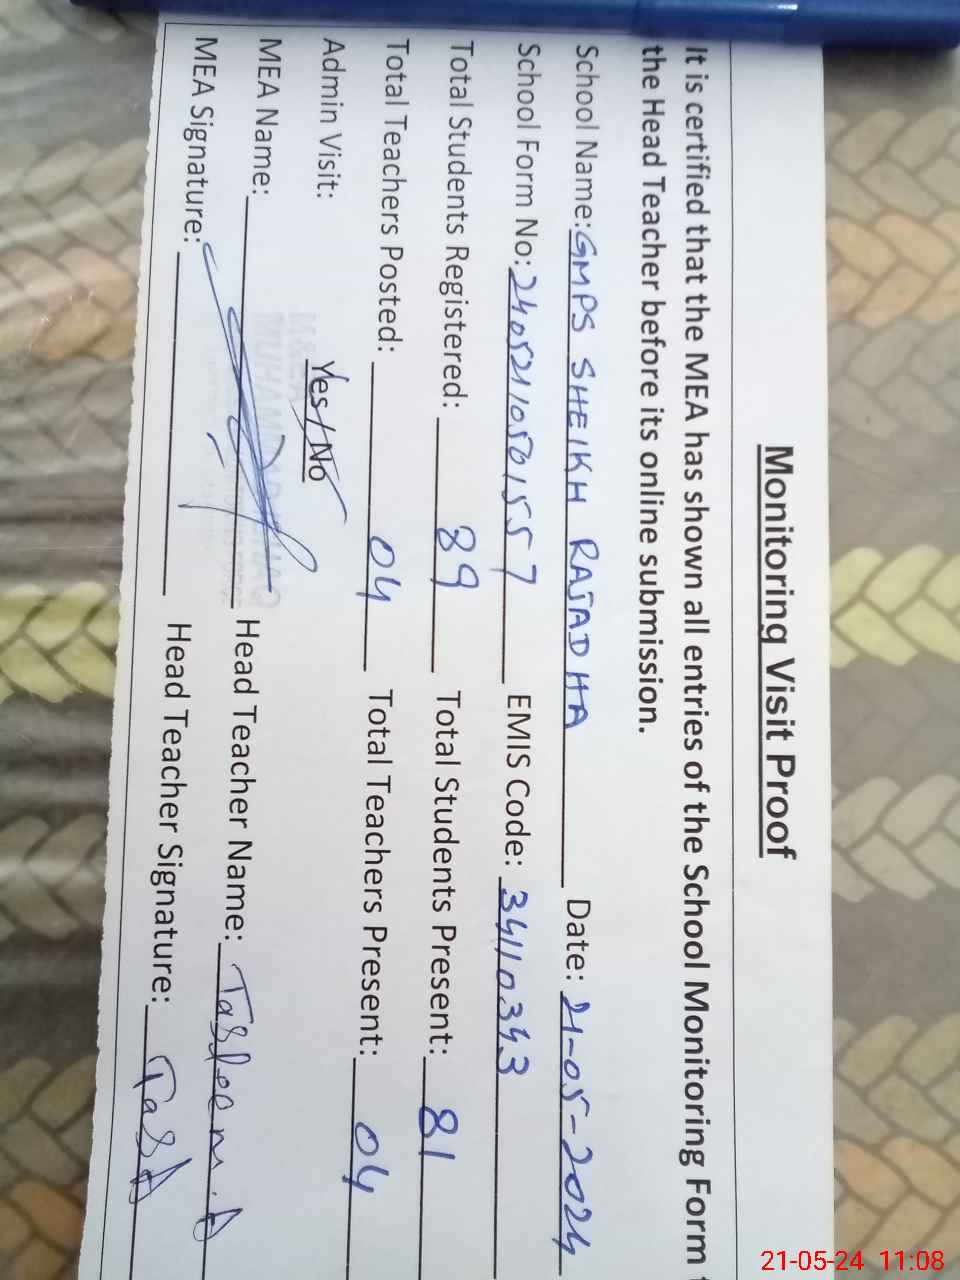 Monitoring Visit Proof
It is certified that the MEA has shown all entries of the School Monitoring Form t
the Head Teacher before its online submission.
School Name: GMPS SHEIKH RAJADHA Date: 21-05-2024
School Form No: 2405210501557 EMIS Code: 34110343
Total Students Registered: 89 Total Students Present: 81
Total Teachers Posted: 04 Total Teachers Present: 04
Admin Visit: Yes / No
MEA Name: Head Teacher Name: Tasleem.A
MEA Signature: Head Teacher Signature:
21-05-24 11:08